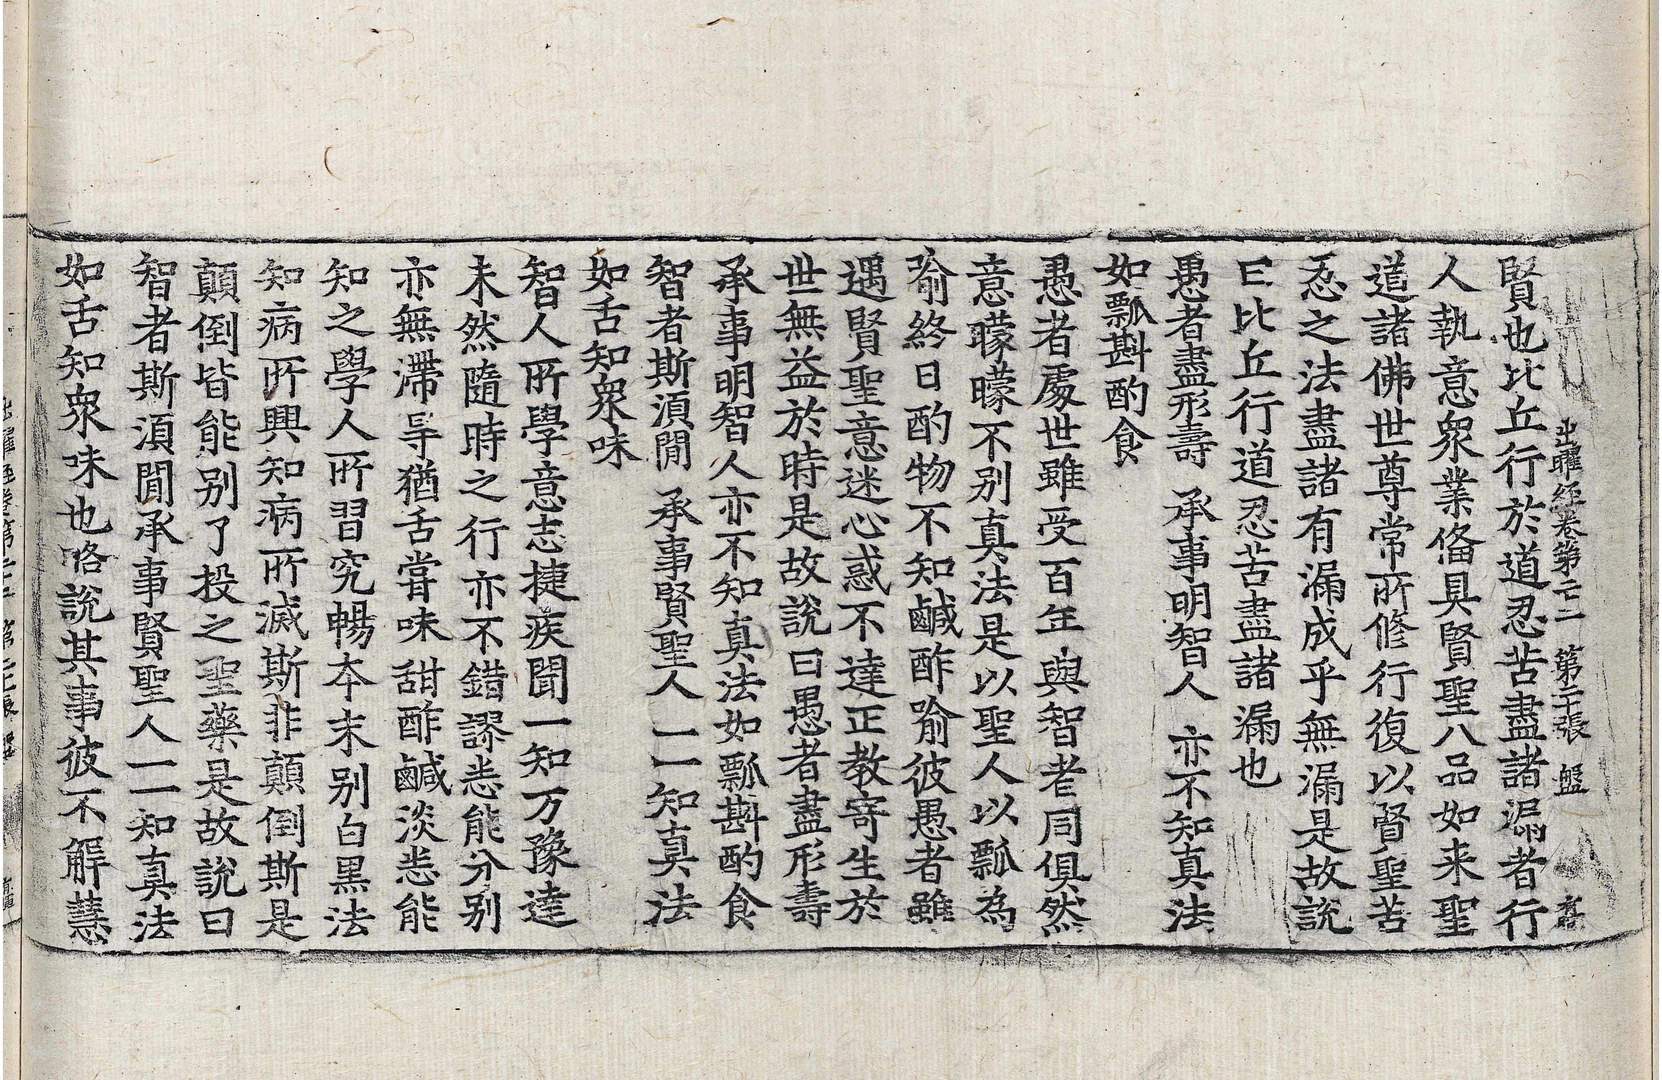 出曜經卷第二十二 第二十張 盤
賢也比丘行於道忍苦盡諸漏者行
人執意衆業俻具賢聖八品如来聖
道諸佛世尊常所修行復以賢聖苦
忍之法盡諸有漏成乎無漏是故說
曰比丘行道忍苦盡諸漏也
愚者盡形壽 承事明智人 亦不知真法
如瓢斟酌食
愚者處世雖受百年與智者同俱然
意曚曚不別真法是以聖人以瓢為
喻終日酌物不知鹹酢喻彼愚者雖
遇賢聖意迷心惑不達正教寄生於
世無益於時是故說曰愚者盡形壽
承事明智人亦不知真法如瓢斟酌食
智者斯湏閒 承事賢聖人 一一知真法
如舌知衆味
智人所學意志捷疾聞一知万豫達
未然隨時之行亦不錯謬悉能分別
亦無滯㝵猶舌甞味甜酢鹹淡悉能
知之學人所習究暢夲末別白黑法
知病所興知病所滅斯非顛倒斯是
顛倒皆能別了投之聖藥是故說曰
智者斯湏閒承事賢聖人一一知真法
如舌知衆味也略說其事彼不解慧